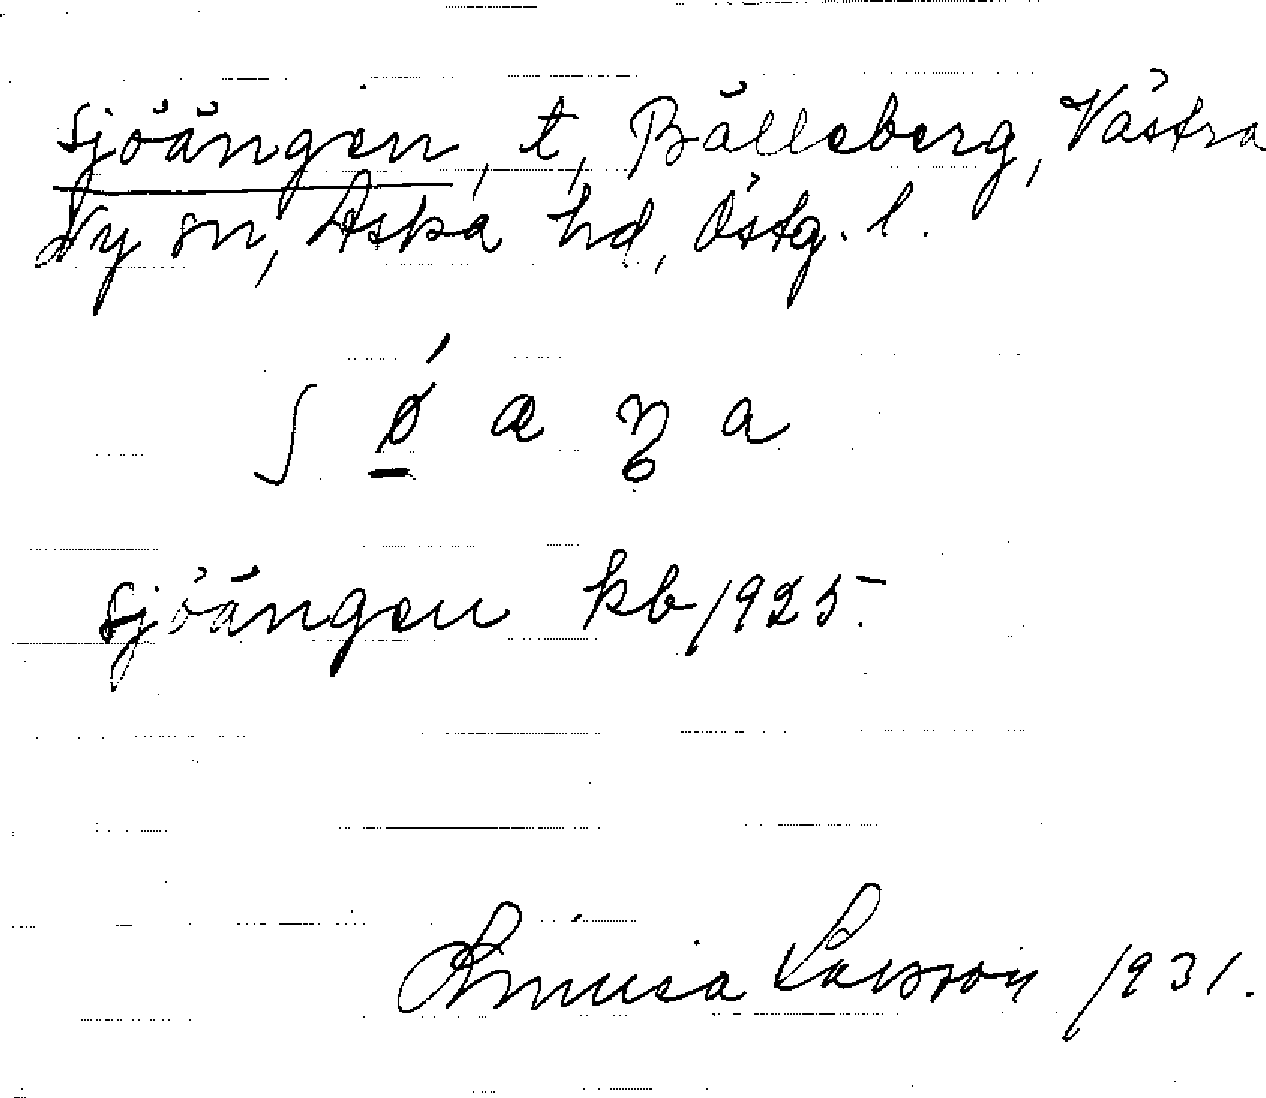 Sjöängen, t, Bälleberg, Västra
Ny sn, Aska hd, Östg. l.
ʃ ǿ æ ŋ a
Sjöängen kb 1925.
Larsson 1931.